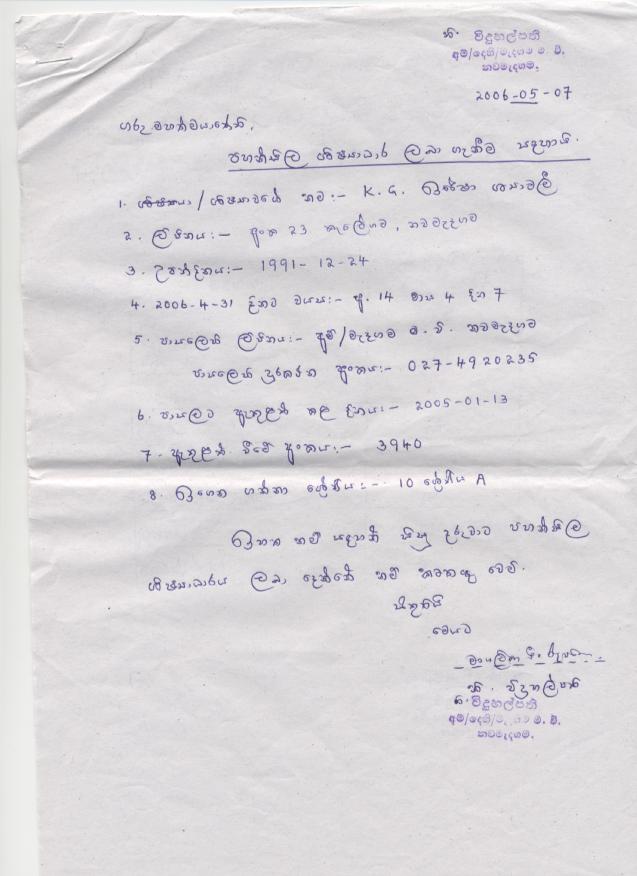 නි. විදුහල්පති
අම්/දෙහි/මැදගම ම. වි.
නවමැදගම.
2006-05-07
ගරු මහත්මයාණෙනි,
පහන්සිල ශිෂ්‍යාධාර ලබා ගැනීම සඳහායි.
1. ශිෂ්‍යයා/ශිෂ්‍යාවගේ නම:- K. G. ඉරේෂා
2. ලිපිනය:- අංක 23 කැලේගම, නවමැදගම
3. උපන්දිනය:- 1991-12-24
4. 2006-4-31 දිනට වයස:- අ. 14 මාස 4 දින 7
5. පාසලෙහි ලිපිනය:- අම්/මැදගම ම. වි. නවමැදගම
පාසලෙහි දුරකථන අංකය:- 027-4920235
6. පාසලට ඇතුළත් කළ දිනය:- 2005-01-13
7. ඇතුළත් වීමේ අංකය:- 3940
8. ඉගෙන ගන්නා ශ්‍රේණිය:- 10 ශ්‍රේණිය A
ඉහත නම් සඳහන් සිසු දරුවාට පහන්සිල
ශිෂ්‍යාධාරය ලබා දෙන්නේ නම් වෙමි.
ස්තුතියි
මෙයට
නි. විදුහල්පති
නි. විදුහල්පති
අම්/දෙහි/මැදගම ම. වි.
නවමැදගම.